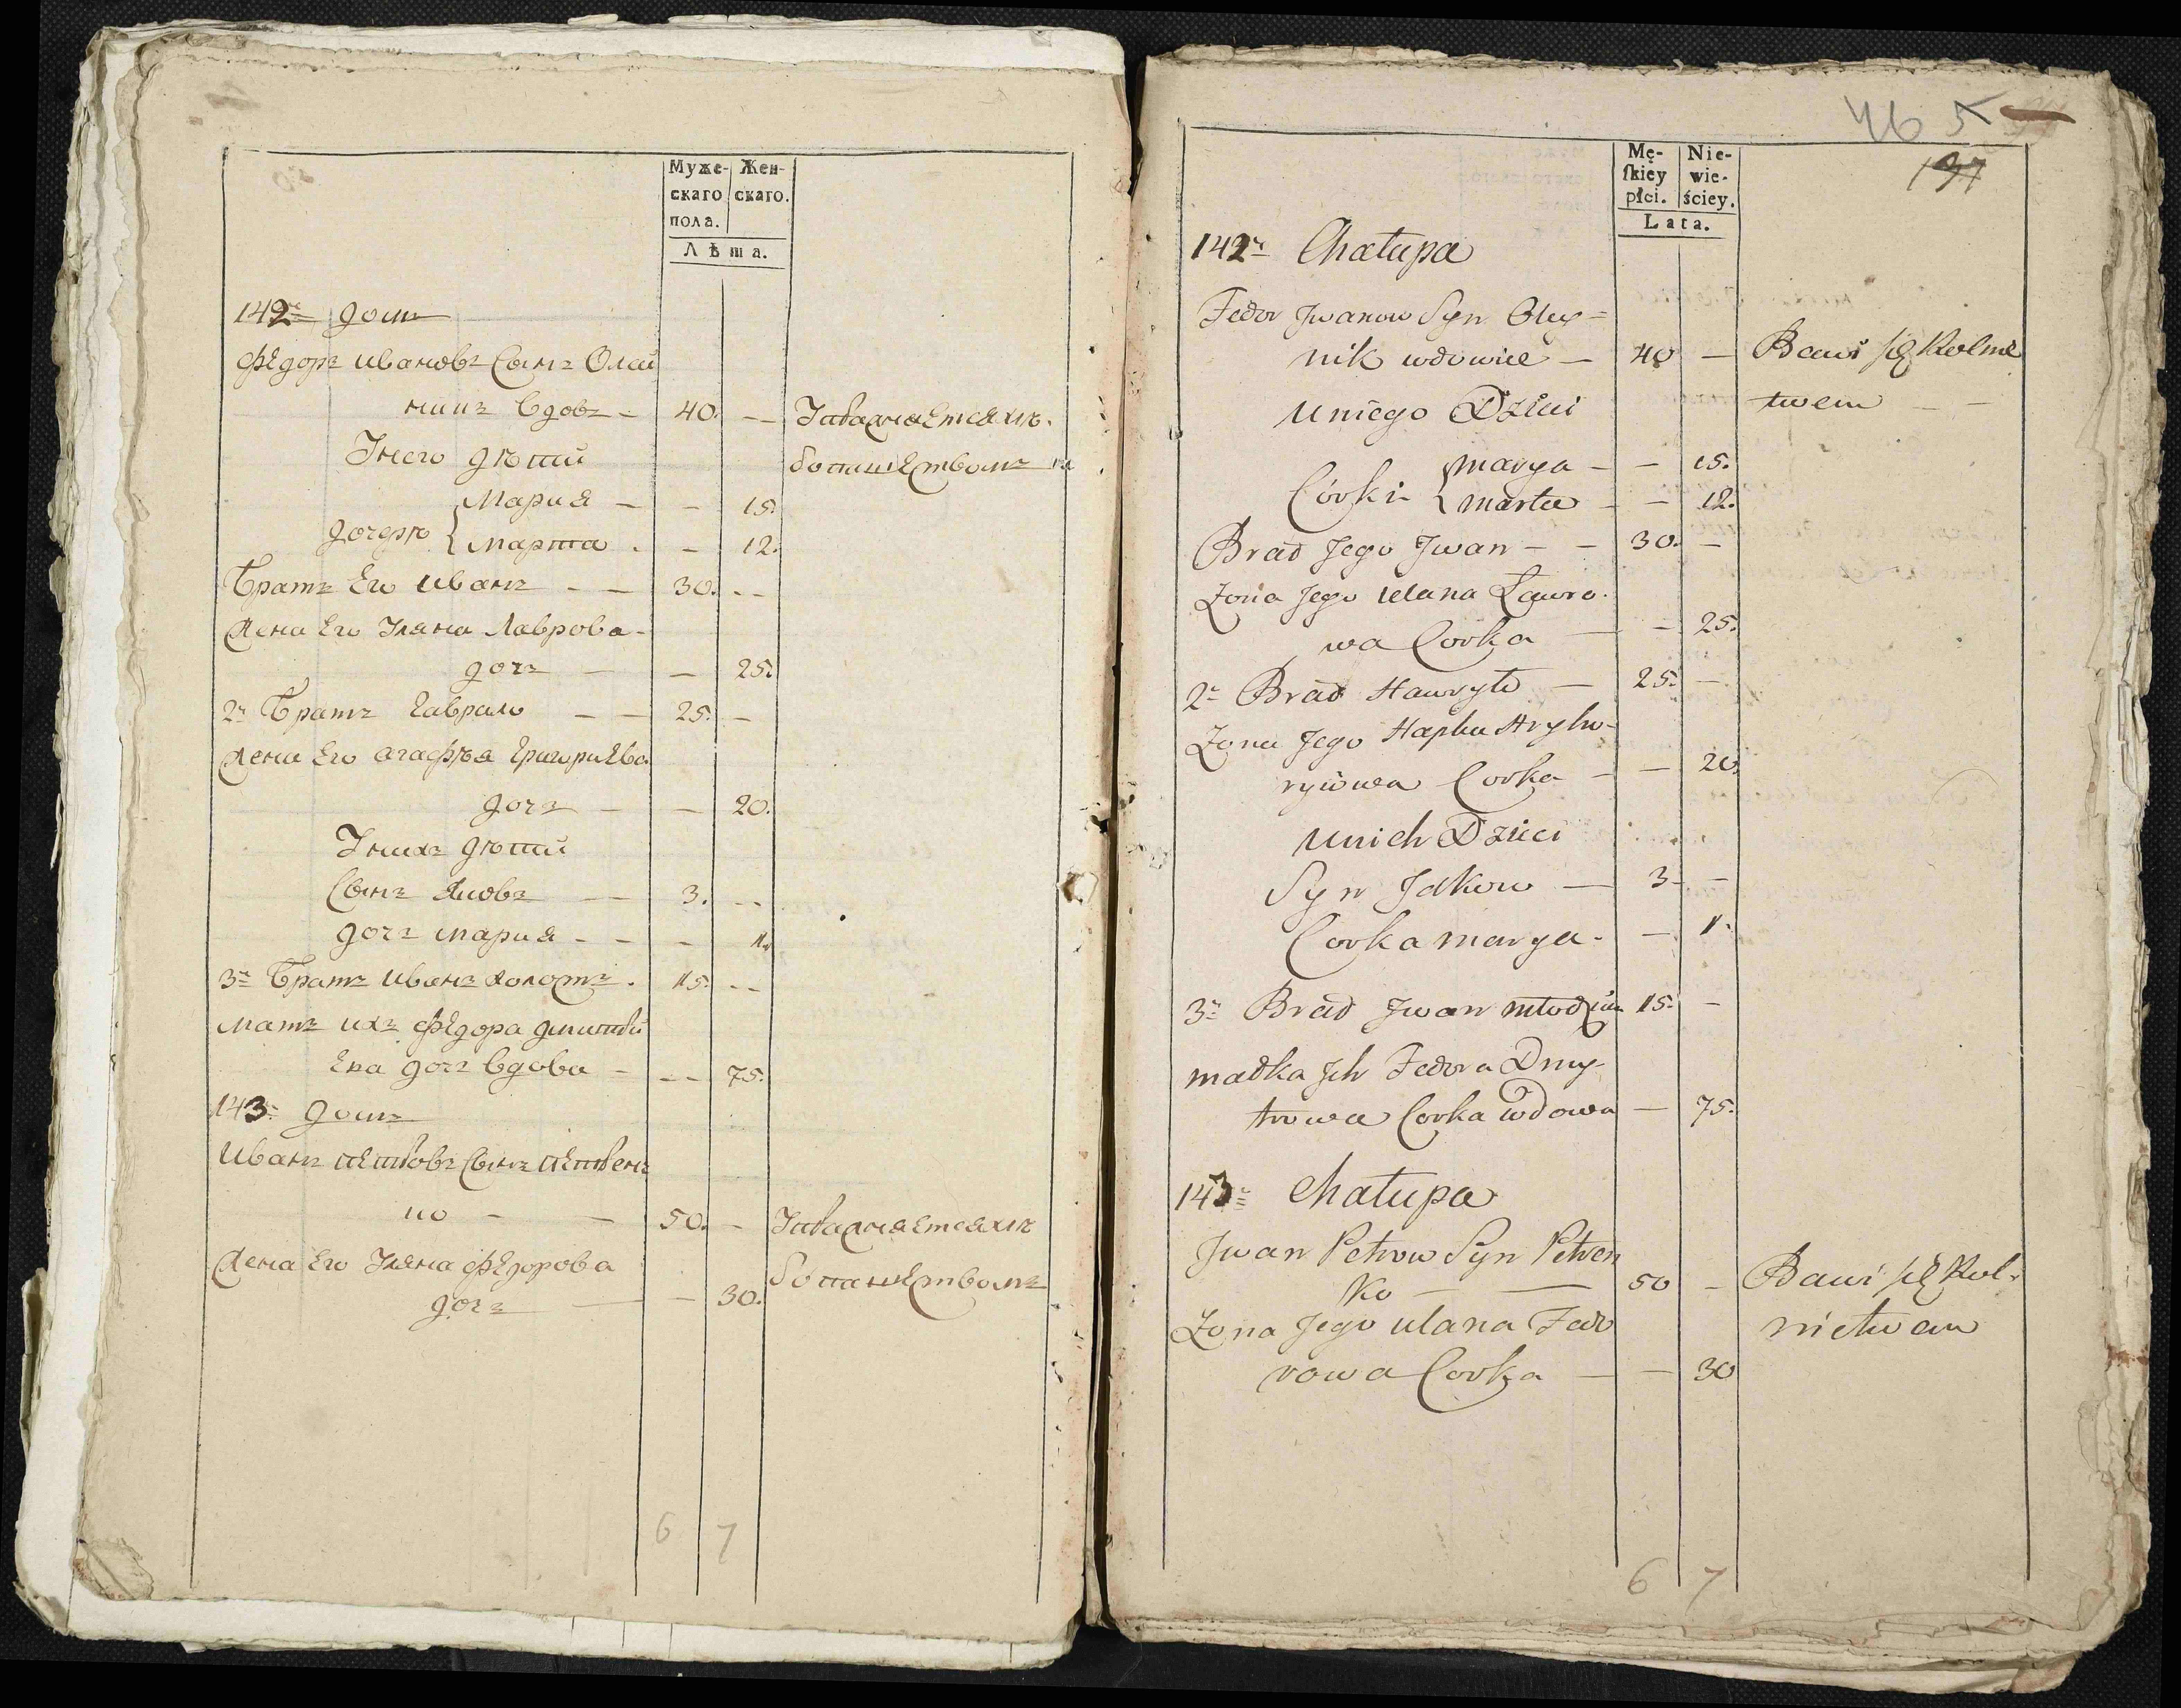 Муже- Жен-
скаго скаго.
пола.
Лѣта.
142й домъ
Федоръ Ивановъ Сынъ Олей
никъ вдовъ - 40. --
Унего дѣтей
Мария - - 15.
дочери
Марта . - 12.
Братъ Его Иванъ - - 30. --
Жена Его Уляна Лаврова-
дочь - - 25.
2й Братъ Гаврило - - 25. -
Жена Его Агафѣя Григориева
дочь - - 20.
Унихъ дѣтей
Сынъ Яковъ - 3. --
дочь Мария - - - 1.
3й Братъ Иванъ холостъ . 15. --
Мать ихъ Федора Дмитрѣ
ева дочь вдова - -- 75.
143й домъ
Иванъ Петровъ Сынъ Петрен
ко - - 50. -
Жена Его Уляна Федорова
дочь - - 30.
6 7
465
137
Mę- Nie-
ſkiey wie-
płci. ściey.
Lata.
142й Chałupa
Fedor Jwanow Syn Oley=
nik wdowiec - 40 - Bawi się Rolnic
uniego Dzieci twem - -
Marya - - 15.
Córki
Marta - - 12.
Brad Jego Jwan - - 30. -
Zona Jego Ulana Ławro-
wa Corka - - 25.
2й Brad Hawryło - 25. -
Zona Jego Hapka Hryho-
ryiowa Corka - - 20.
unich Dzieci
Syn Jakow - 3 -
Corka Marya - - 1.
3й Brad Jwan młodzian 15. -
Madka Jch Fedora Dmy-
trowa Corka wdowa - 75.
143й Chałupa
Jwan Petrow Syn Petren
ko - - 50 - Bawi się Rol-
Zona Jego Ulana Fedo nictwem
rowa Corka - - 30
6 7